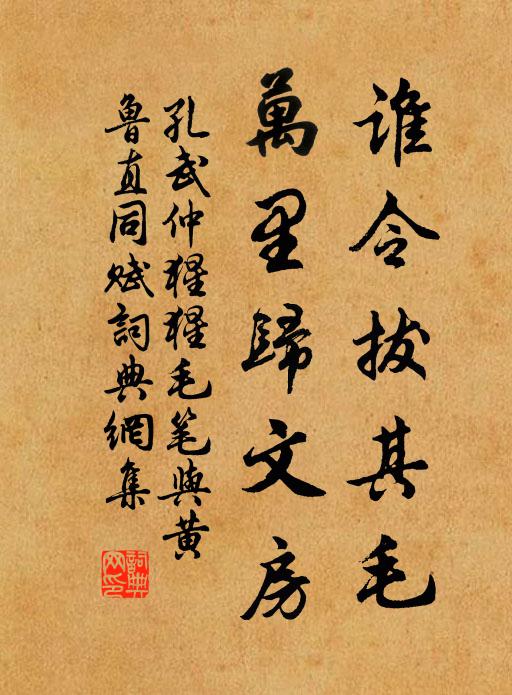 誰令拔其毛
萬里歸文房
孔武仲猩猩毛笔與黄
魯直同賦詞典網集
詞典网印